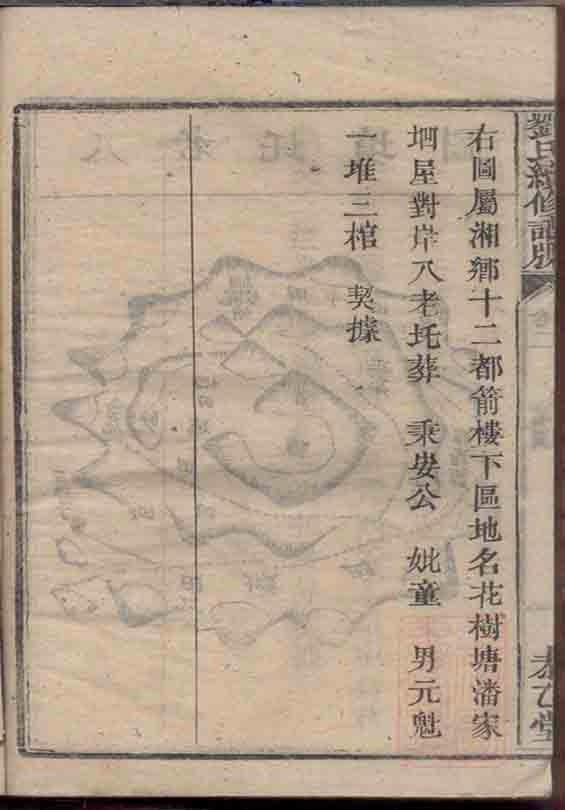 劉氏續修譜牒
卷二
恭乙堂
右圖屬湘鄉十二都箭樓下區地名花樹塘潘家
垇屋對岸八老圫葬　秉安公　妣童　男元魁
一堆三棺　契據一